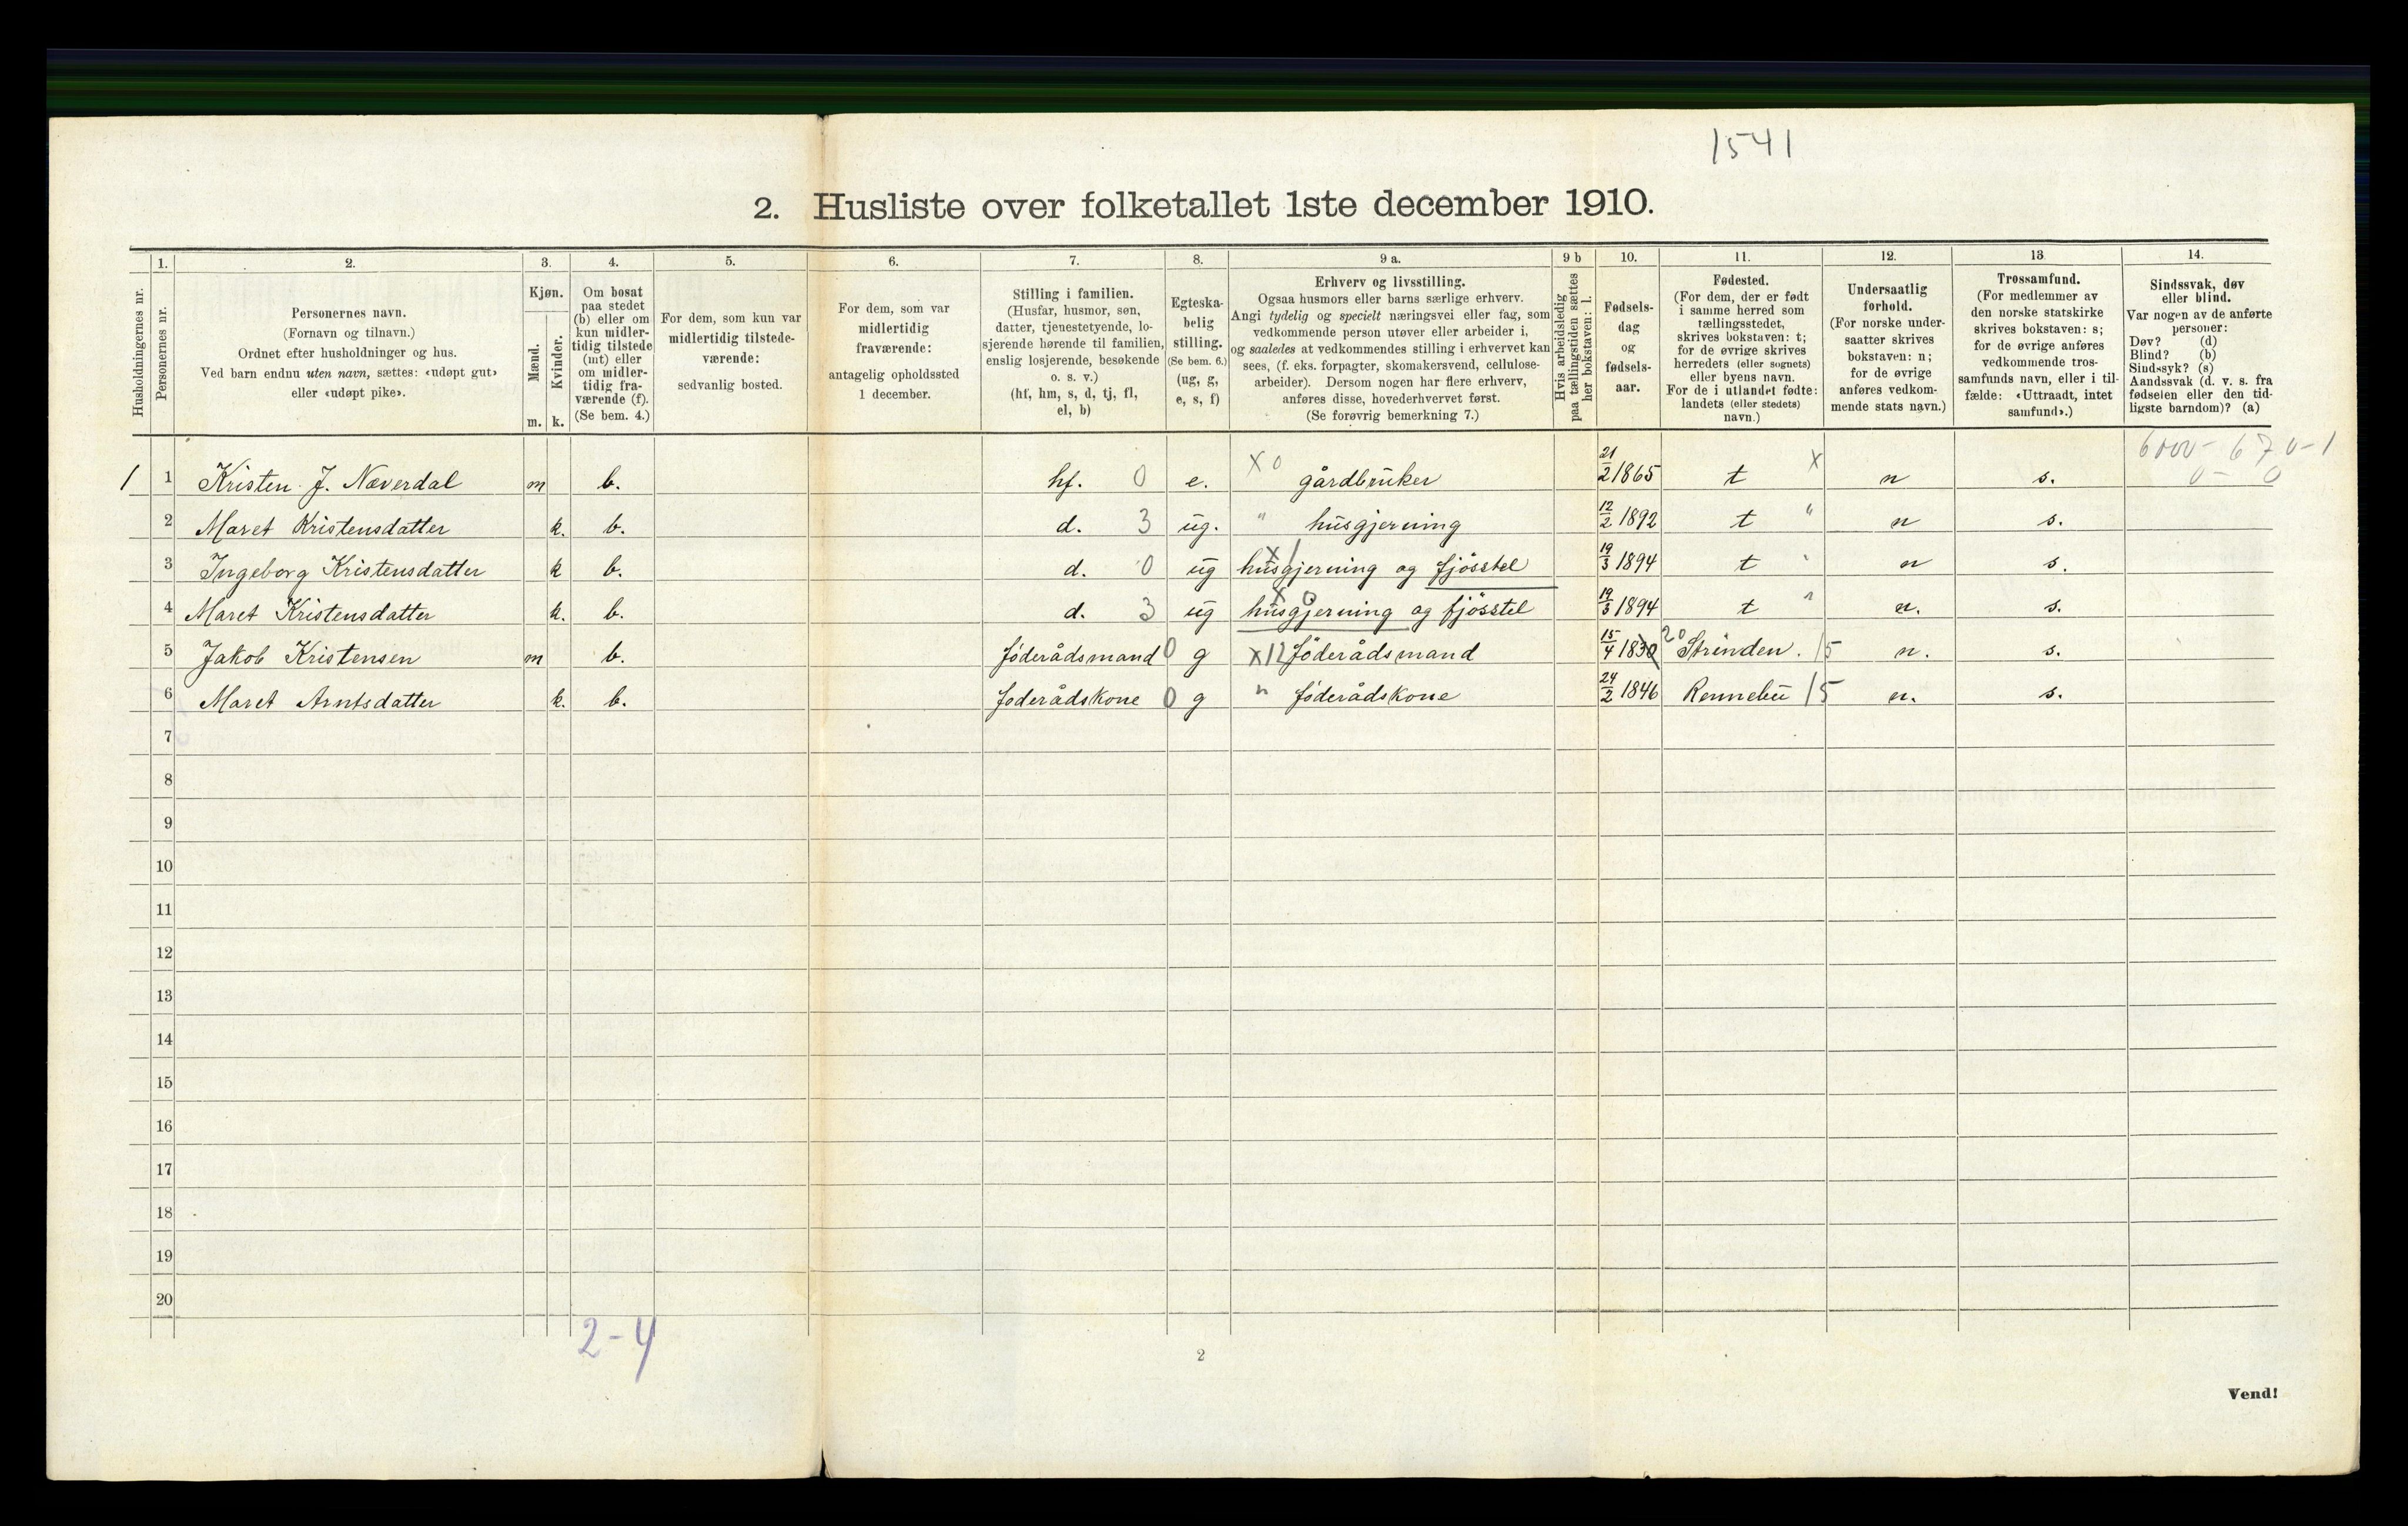 1541
2. Husliste over folketallet 1ste december 1910.
Husholdningernes nr.
1.
Personernes nr.
2.
Personernes navn.
(Fornavn og tilnavn.)
Ordnet efter husholdninger og hus.
Ved barn endnu uten navn, sættes: «udøpt gut»
eller «udøpt pike».
3.
Kjøn.
Mænd.
Kvinder.
m. k.
4.
Om bosat
paa stedet
(b) eller om
kun midler-
tidig tilstede
(mt) eller
om midler-
tidig fra-
værende (f).
(Se bem. 4.)
5.
For dem, som kun var
midlertidig tilstede-
værende:
sedvanlig bosted.
6.
For dem, som var
midlertidig
fraværende:
antagelig opholdssted
1 december.
7.
Stilling i familien.
(Husfar, husmor, søn,
datter, tjenestetyende, lo-
sjerende hørende til familien,
enslig losjerende, besøkende
o. s. v.)
(hf, hm, s, d, tj, fl,
el, b)
8.
Egteska-
belig
stilling.
(Se bem. 6.)
(ug, g,
e, s, f)
9 a.
Erhverv og livsstilling.
Ogsaa husmors eller barns særlige erhverv.
Angi tydelig og specielt næringsvei eller fag, som
vedkommende person utøver eller arbeider i,
og saaledes at vedkommendes stilling i erhvervet kan
sees, (f. eks. forpagter, skomakersvend, cellulose-
arbeider). Dersom nogen har flere erhverv,
anføres disse, hovederhvervet først.
(Se forøvrig bemerkning 7.)
9 b
Hvis arbeidsledig
paa tællingstiden sættes
her bokstaven: l.
10.
Fødsels-
dag
og
fødsels-
aar.
11.
Fødested.
(For dem, der er født
i samme herred som
tællingsstedet,
skrives bokstaven: t;
for de øvrige skrives
herredets (eller sognets)
eller byens navn.
For de i utlandet fødte:
landets (eller stedets)
navn.)
12.
Undersaatlig
forhold.
(For norske under-
saatter skrives
bokstaven: n;
for de øvrige
anføres vedkom-
mende stats navn.)
13.
Trossamfund.
(For medlemmer av
den norske statskirke
skrives bokstaven: s;
for de øvrige anføres
vedkommende tros-
samfunds navn, eller i til-
fælde: «Uttraadt, intet
samfund».)
14.
Sindssvak, døv
eller blind.
Var nogen av de anførte
personer:
Døv? (d)
Blind? (b)
Sindssyk? (s)
Aandssvak (d. v. s. fra
fødselen eller den tid-
ligste barndom)? (a)
1 1 Kristen J. Næverdal m b. hf. 0 e. X 0 gårdbruker 21/2 1865 t X n s.
2 Maret Kristensdatter k. b. d. 3 ug. " husgjerning 12/2 1892 t " n s.
3 Ingeborg Kristensdatter k b. d. 0 ug X 1 husgjerning og fjösstel 19/3 1894 t " n s.
4 Maret Kristensdatter k. b. d. 3 ug X 0 husgjerning og fjösstel 19/3 1894 t " n. s.
5 Jakob Kristensen m b. föderådsmand 0 g X12 föderådsmand 15/4 1830 20 Strinden. 15 n. s.
6 Maret Arntsdatter k. b. föderådskone 0 g " föderådskone 24/2 1846 Rennebu 15 n. s.
7
8
9
10
11
12
13
14
15
16
17
18
19
20
2-4
2
Vend!